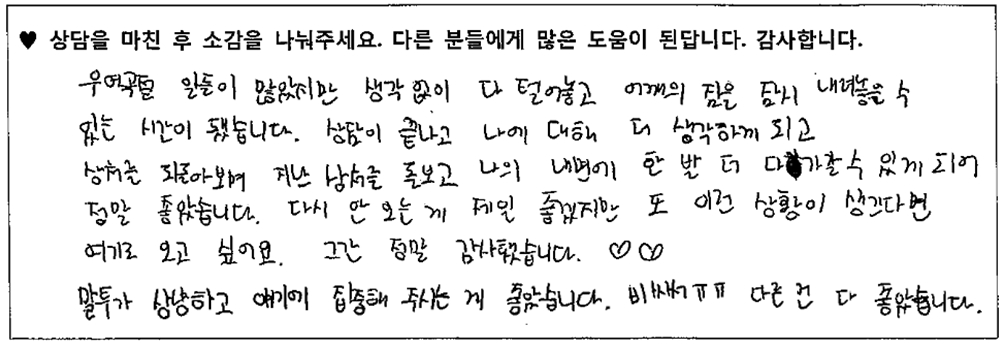 ♥ 상담을 마친 후 소감을 나눠주세요. 다른 분들에게 많은 도움이 된답니다. 감사합니다.
우여곡절 일들이 많았지만 생각 없이 다 털어놓고 어깨의 짐을 잠시 내려놓을 수
있는 시간이 됐습니다. 상담이 끝나고 나에 대해 더 생각하게 되고
상처를 되돌아보며 지난 상처를 돌보고 나의 내면에 한 발 더 다가갈 수 있게 되어
정말 좋았습니다. 다시 안 오는 게 제일 좋겠지만 또 이런 상황이 생긴다면
여기로 오고 싶어요. 그간 정말 감사했습니다. ♡♡
말투가 상냥하고 얘기에 집중해 주시는 게 좋았습니다. 비싸서ㅠㅠ 다른 건 다 좋았습니다.